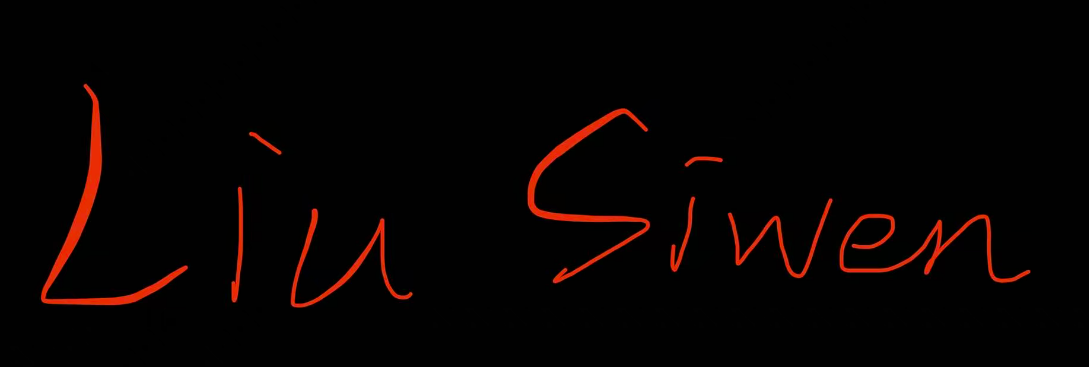 Liu Siwen